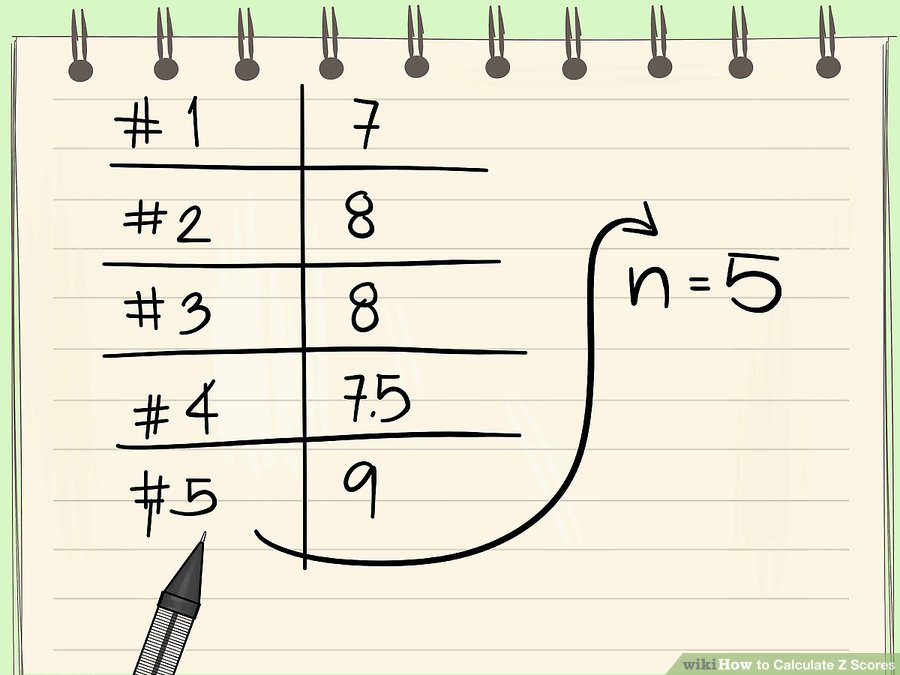 #1 7
#2 8
#3 8
#4 7.5
#5 9
n = 5
wikiHow to Calculate Z Scores